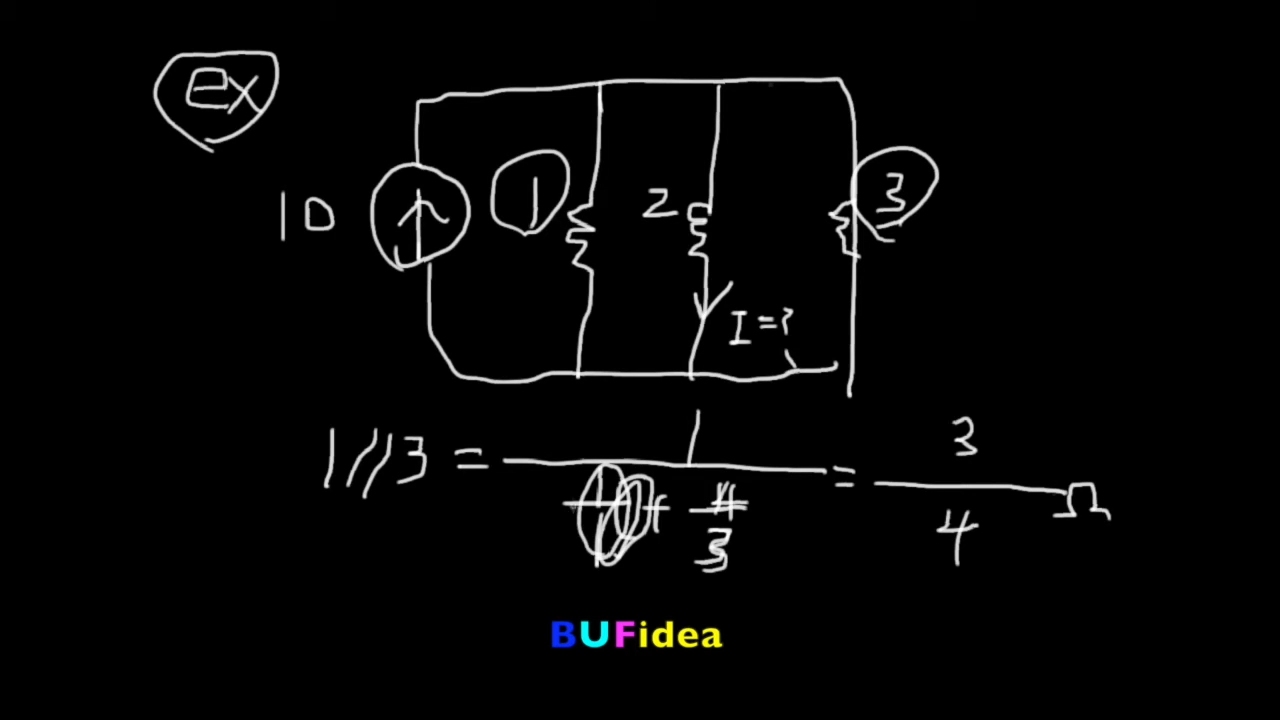 ex
10 1 2 3
I=?
1//3 = = 3
3 4 Ω
BUFidea